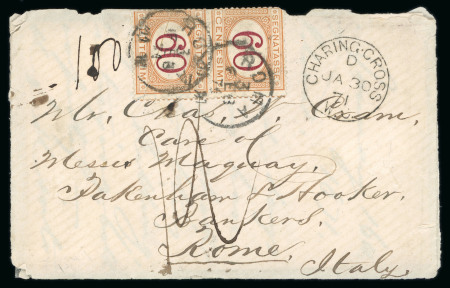 SEGNATASSE
60
CENTESIMI
SEGNATASSE
60
CENTESIMI
ROMA
CHARING-CROSS
D
JA 30
71
Mr. Chas. Exam,
Care of
Messrs Maquay,
Pakenham & Hooker,
Bankers.
Rome,
Italy.